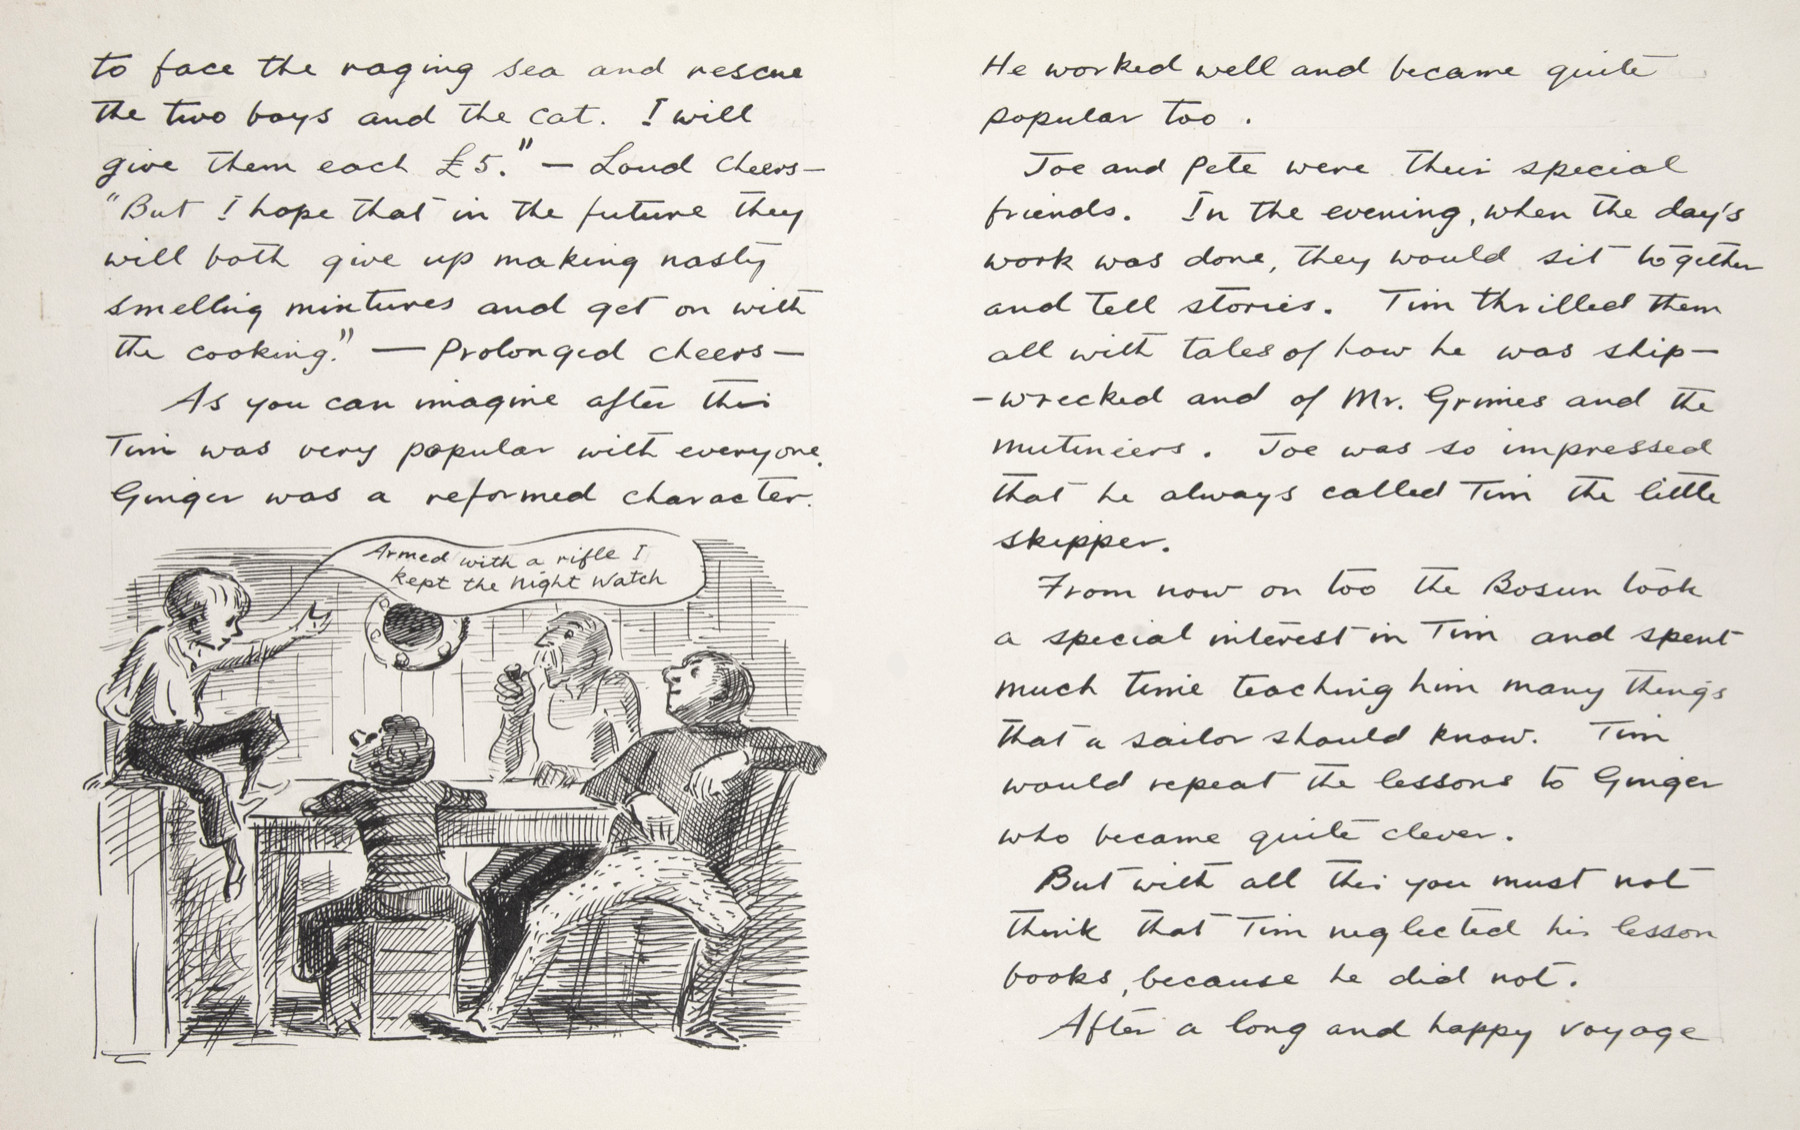 to face the raging sea and rescue
the two boys and the cat. I will
give them each £5." — Loud cheers —
"But I hope that in the future they
will both give up making nasty
smelling mixtures and get on with
the cooking." — Prolonged cheers —
As you can imagine after this
Tim was very popular with everyone.
Ginger was a reformed character.
Armed with a rifle I
kept the Night Watch
He worked well and became quite
popular too.
Joe and Pete were their special
friends. In the evening, when the day's
work was done, they would sit together
and tell stories. Tim thrilled them
all with tales of how he was ship-
-wrecked and of Mr. Grimes and the
mutineers. Joe was so impressed
that he always called Tim the little
skipper.
From now on too the Bosun took
a special interest in Tim and spent
much time teaching him many things
that a sailor should know. Tim
would repeat the lessons to Ginger
who became quite clever.
But with all this you must not
think that Tim neglected his lesson
books, because he did not.
After a long and happy voyage